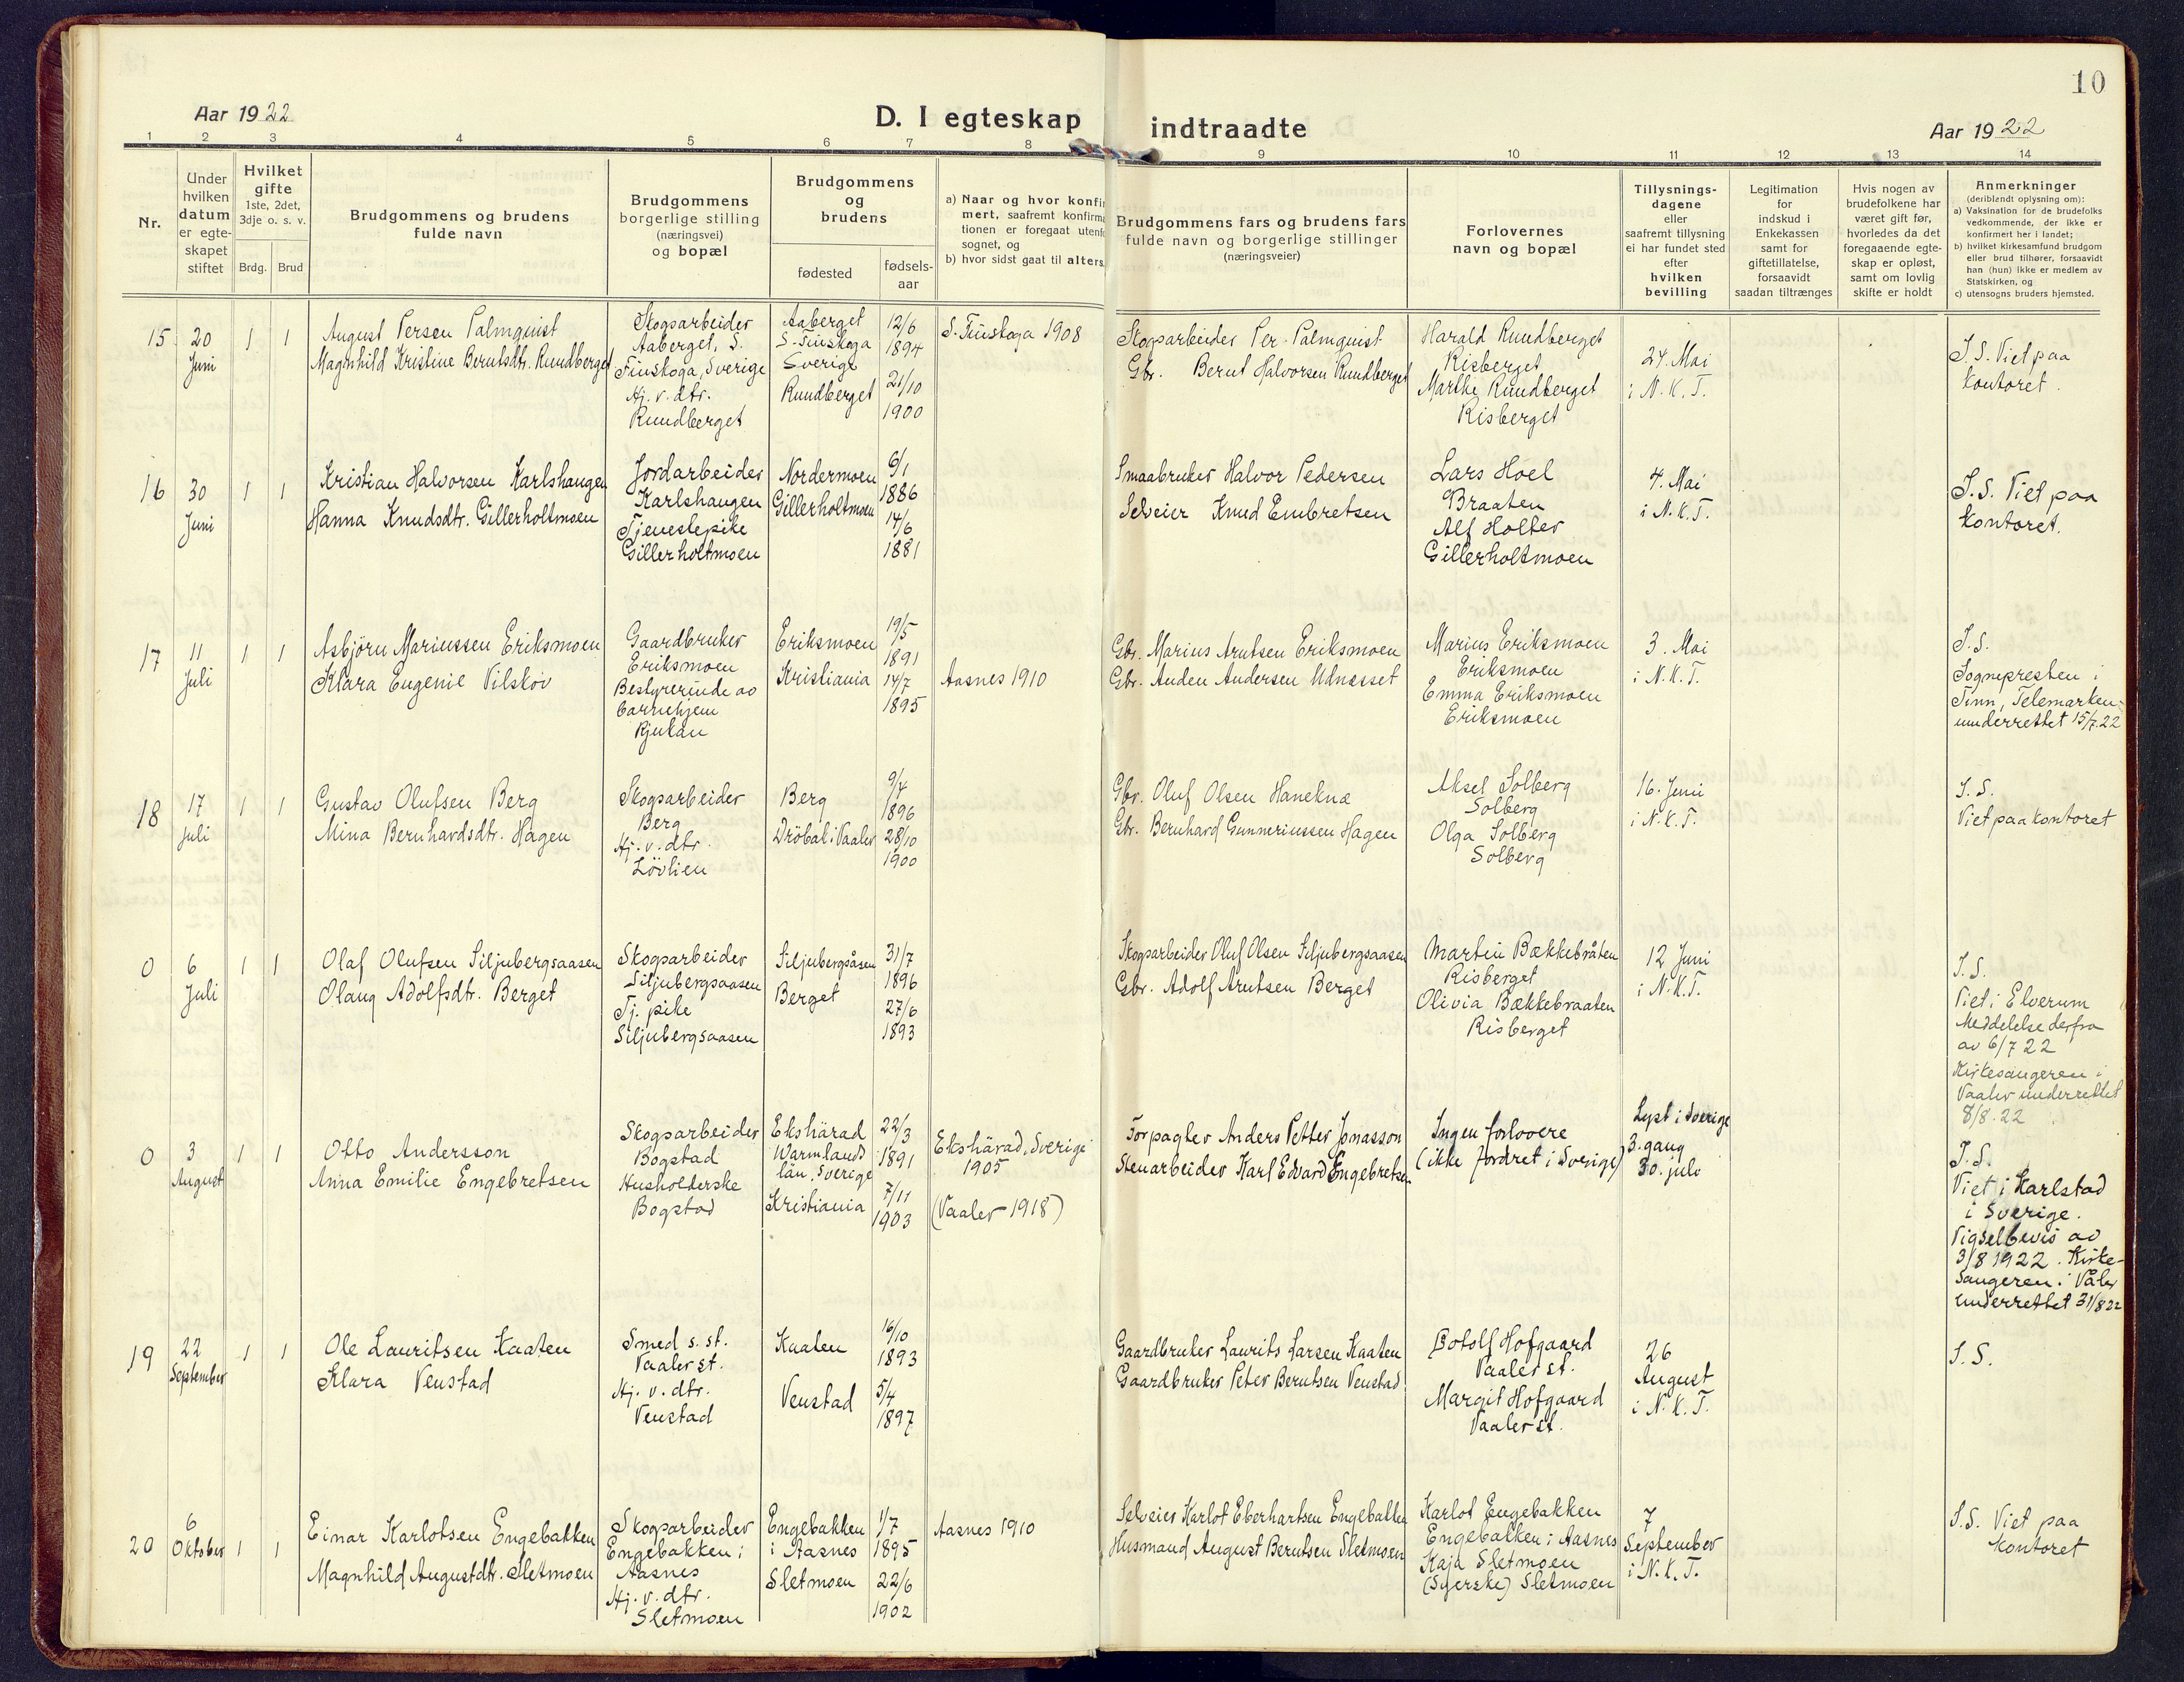 10
Aar 1922
D. I egteskap
indtraadte
Aar 1922
1 2 3 4 5 6 7 8 9 10 11 12 13 14
Nr.
Under hvilken datum er egte-skapet stiftet
Hvilket gifte
1ste, 2det, 3dje o. s. v.
Brdg. Brud
Brudgommens og brudens fulde navn
Brudgommens borgerlige stilling (næringsvei) og bopæl
Brudgommens og brudens
fødested
fødsels-aar
a) Naar og hvor konfir
mert, saafremt konfirma
tionen er foregaat utenf
sognet, og
b) hvor sidst gaat til alters.
Brudgommens fars og brudens fars
fulde navn og borgerlige stillinger
(næringsveier)
Forlovernes
navn og bopæl
Tillysnings-
dagene
eller
saafremt tillysning
ei har fundet sted
efter
hvilken
bevilling
Legitimation
for
indskud i
Enkekassen
samt for
giftetillatelse,
forsaavidt
saadan tiltrænges
Hvis nogen av
brudefolkene har
været gift før,
hvorledes da det
foregaaende egte-
skap er opløst,
samt om lovlig
skifte er holdt
Anmerkninger
(deriblandt oplysning om):
a) Vaksination for de brudefolks
vedkommende, der ikke er
konfirmert her i landet;
b) hvilket kirkesamfund brudgom
eller brud tilhører, forsaavidt
han (hun) ikke er medlem av
Statskirken, og
c) utensogns bruders hjemsted.
15 20 Juni 1 1
August Persen Palmquist
Magnhild Kristine Berntsdtr. Rundberget
Skogsarbeider
Aaberget, S.
Finskoga, Sverige
Hj. v. dtr.
Rundberget
Aaberget
S-Finskoga
Sverige
Rundberget
12/6
1894
21/10
1900
S. Finskoga 1908
Skogsarbeider Per Palmquist
Gbr. Bernt Halvorsen Rundberget
Harald Rundberget
Risberget
Marthe Rundberget
Risberget
24. Mai
i N. K. T.
I. S. Viet paa
kontoret.
16 30 Juni 1 1
Kristian Halvorsen Karlshaugen
Hanna Knudsdtr. Gillerholtmoen
Jordarbeider
Karlshaugen
Tjenestepike
Gillerholtmoen
Nordermoen
Gillerholtmoen
6/1
1886
14/6
1881
Smaabruker Halvor Pedersen
Selveier Knud Embretsen
Lars Hoel
Braaten
Alf Holter
Gillerholtmoen
4. Mai
i N.K.T.
I. S. Viet paa
kontoret.
17 11 Juli 1 1
Asbjörn Mariussen Eriksmoen
Klara Eugenie Vilsköv
Gaardbruker
Eriksmoen
Bestyrerinde av
barnehjem
Rjukan
Eriksmoen
Kristiania
19/5
1891
14/7
1895
Aasnes 1910
Gbr. Marius Arntsen Eriksmoen
Gbr. Anden Andersen Udnesset
Marius Eriksmoen
Eriksmoen
Emma Eriksmoen
Eriksmoen
3. Mai
i N.K.T.
I. S.
Sognepresten i
Tinn, Telemarken
underrettet 15/7.22
18 17 Juli 1 1
Gustav Olufsen Berg
Mina Bernhardsdtr. Hagen
Skogsarbeider
Berg
Hj. v. dtr.
Lövlien
Berg
Dröbak i Vaaler
9/4
1896
28/10
1900
Gbr. Oluf Olsen Haneknæ
Gbr. Bernhard Gunneriussen Hagen
Aksel Solberg
Solberg
Olga Solberg
Solberg
16. Juni
i N.K.T.
I. S.
Viet paa kontoret
0 6 Juli 1 1
Olaf Olufsen Siljubergsaasen
Olaug Adolfsdtr. Berget
Skogsarbeider
Siljubergsaasen
Tj. pike
Siljubergsaasen
Siljubergsåsen
Berget
31/7
1896
27/6
1893
Skogsarbeider Oluf Olsen Siljubergsaasen
Gbr. Adolf Arntsen Berget
Martin Bækkebråten
Risberget
Olivia Bækkebraaten
Risberget
12 Juni
i N.K.T.
I. S.
Viet i Elverum
Meddelelse derfra
av 6/7 22
Kirkesangeren i
Vaaler underrettet
8/8.22
0 3 August 1 1
Otto Andersson
Anna Emilie Engebretsen
Skogsarbeider
Bogstad
Husholderske
Bogstad
Ekshärad
Warmlands
län, Sverige
Kristiania
22/3
1891
7/11
1903
Ekshärad, Sverige
1905
(Vaaler 1918)
Forpagter Anders Petter Jonasson
Stenarbeider Karl Edvard Engebretsen
Ingen forlovere
(ikke fordret i Sverige)
Lyst i Sverige
3. gang
30. juli
I. S.
Viet i Karlstad
i Sverige.
Vigselbevis av
3/8 1922. Kirke-
sangeren i Våler
underrettet 31/8 22
19 22 September 1 1
Ole Lauritsen Kaaten
Klara Venstad
Smed s. st.
Vaaler st.
Hj. v. dtr.
Venstad
Kaaten
Venstad
16/10
1893
5/4
1897
Gaardbruker Laurits Larsen Kaaten
Gaardbruker Peter Berntsen Venstad
Botolf Hofgaard
Vaaler st.
Margit Hofgaard
Vaaler st.
26
August
i N. K. T.
I. S.
20 6 Oktober 1 1
Einar Karlotsen Engebakken
Magnhild Augustdtr. Sletmoen
Skogsarbeider
Engebakken i
Aasnes
Hj. v. dtr.
Sletmoen
Engebakken
i Aasnes
Sletmoen
1/7
1895
22/6
1902
Aasnes 1910
Selveier Karlot Eberhartsen Engebakken
Husmand August Berntsen Sletmoen
Karlot Engebakken
Engebakken i Aasnes
Kaja Sletmoen
(Syerske) Sletmoen
7
September
i N. K. T.
I. S. Viet paa
kontoret